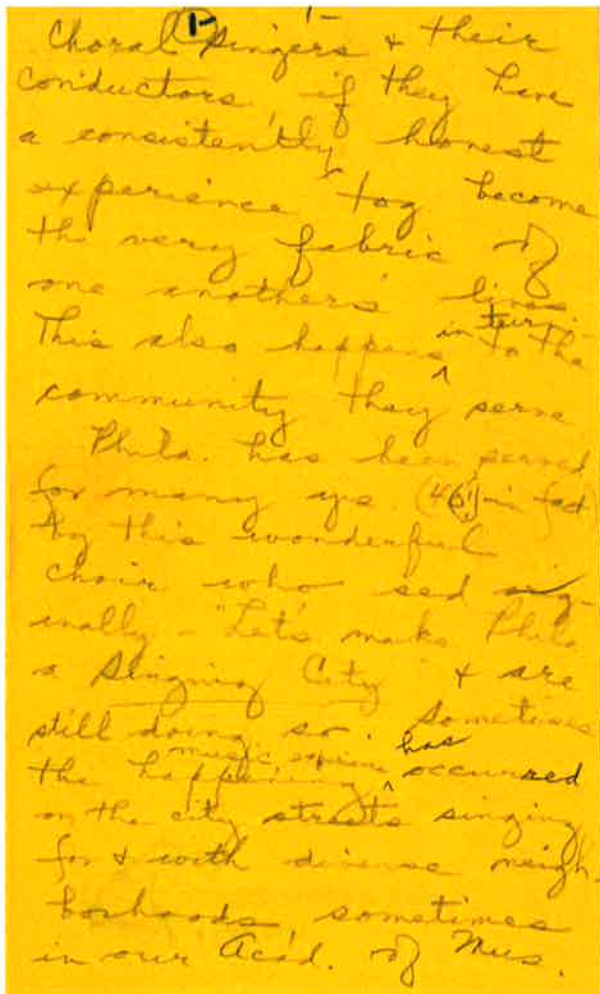 1-
Choral Singers & their
conductors, if they have
a consistently honest
experience tog become
the very fabric of
one another's lives.
This also happens in turn to the
community they serve
Phila. has been served
for many yrs. (46! in fact)
by this wonderful
choir who sed orig-
inally - "Let's make Phila
a Singing City" & are
still doing so. Sometimes
the happening music has occurred
on the city streets singing
for & with diverse neigh-
borhoods, sometimes
in our Acad. of Mus.